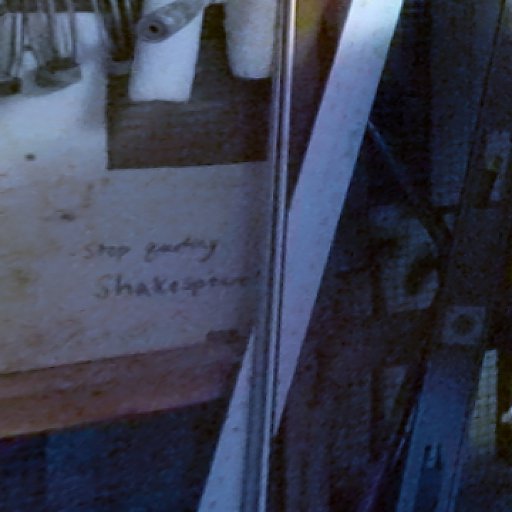 Stop quoting
Shakespeare